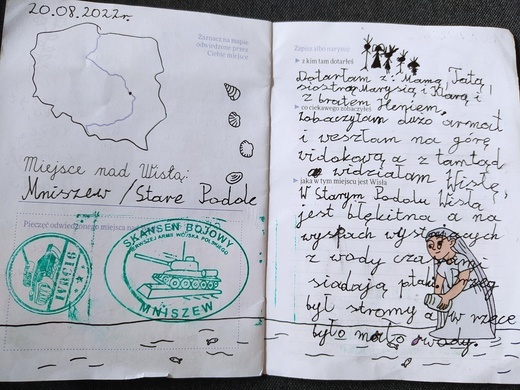 20.08.2022r.
Zaznacz na mapie
odwiedzone przez
Ciebie miejsce
Miejsce nad Wisłą:
Mniszew / Stare Podole
Pieczęć odwiedzonego miejsca
SKANSEN BOJOWY
PIERWSZEJ ARMII WOJSKA POLSKIEGO
MNISZEW
Zapisz albo narysuj:
z kim tam dotarłeś
Dotarłam z: Mamą, Tatą,
siostrą Marysią i Klarą i
z bratem Heniem,
co ciekawego zobaczyłeś
zobaczyłam dużo armat
i weszłam na górę
widokową a z tamtąd
widziałam Wisłę,
jaka w tym miejscu jest Wisła
W Starym Podolu Wisła
jest błękitna a na
wyspach wystających
z wody czasami
siadają ptaki Brzeg
był stromy a w rzece
było mało wody.